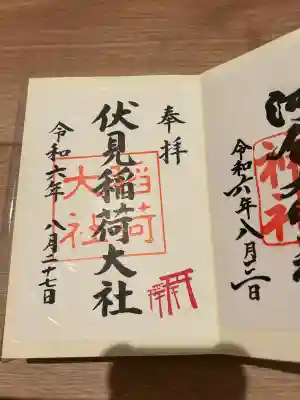 神社
令和六年八月
奉拝
伏見稲荷大社
稲荷
大社
令和六年 八月二十七日